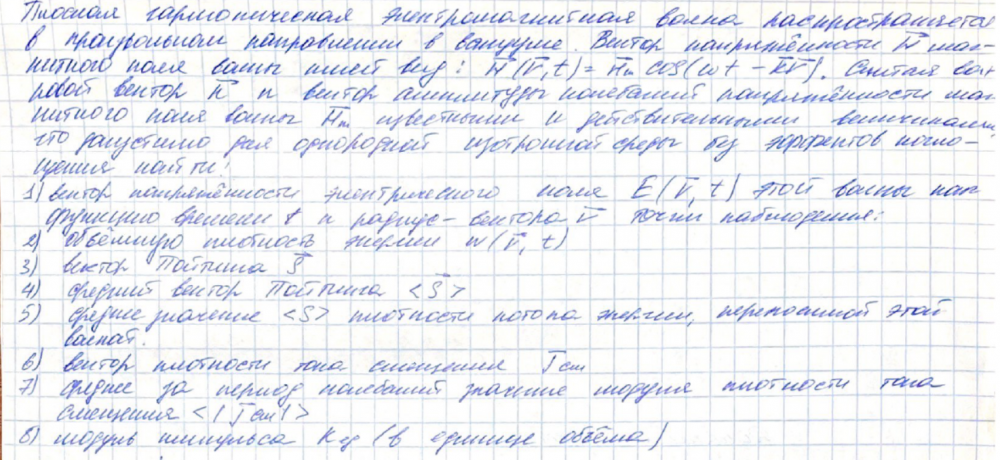 Плоская гармоническая электромагнитная волна распространяется
в произвольном направлении в вакууме. Вектор напряжённости H⃗ маг-
нитного поля волны имеет вид: H⃗(r⃗,t) = H⃗m cos(ωt - k⃗r⃗). Считая вол-
новой вектор k⃗ и вектор амплитуды колебаний напряжённости маг-
нитного поля волны H⃗m известными и действительными величинами,
что допустимо для однородной изотропной среды без эффектов погло-
щения найти:
1) вектор напряжённости электрического поля E(r⃗, t) этой волны как
функцию времени t и радиус-вектора r⃗ точки наблюдения:
2) объёмную плотность энергии w(r⃗, t)
3) вектор Пойтинга S⃗
4) средний вектор Пойтинга <S⃗>
5) средне значение <S> плотности потока энергии, переносимой этой
волной.
6) вектор плотности тока смещения j⃗см
7) средне за период колебаний значение модуля плотности тока
смещения <|j⃗см|>
8) модуль импульса Kед (в единице объёма)